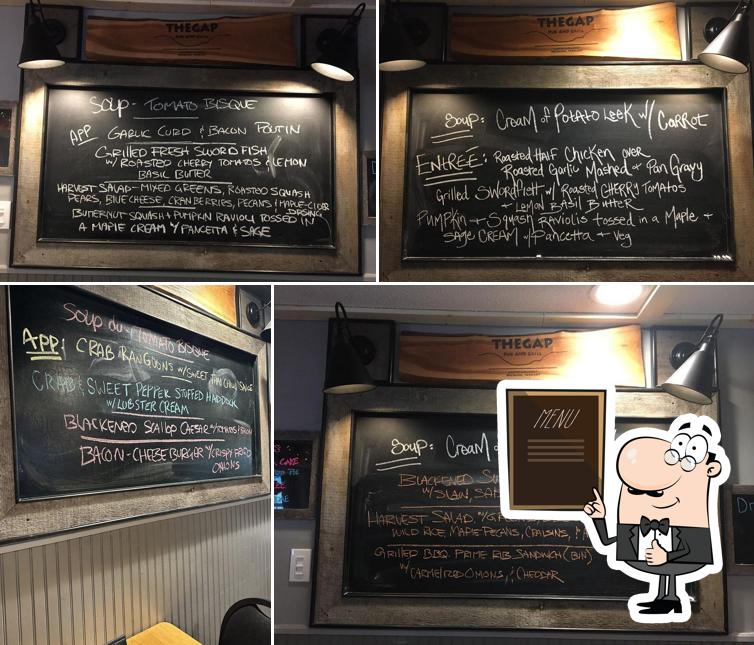 THEGAP
PUB AND GRILL
Soup - TOMATO BISQUE
APP GARLIC CURD & BACON POUTIN
GRILLED FRESH SWORDFISH
W/ ROASTED CHERRY TOMATOS & LEMON
BASIL BUTTER
HARVEST SALAD - MIXED GREENS, ROASTED SQUASH
PEARS, BLUE CHEESE, CRANBERRIES, PECANS & MAPLE-CIDER
DRSING
BUTTERNUT SQUASH & PUMPKIN RAVIOLI TOSSED IN
A MAPLE CREAM W/ PANCETTA & SAGE
THEGAP
PUB AND GRILL
Soup: Cream of Potato Leek w/ Carrot
ENTREÉ: Roasted Half Chicken over
Roasted Garlic Mashed + Pan Gravy
Grilled Swordfish w/ Roasted CHERRY Tomatos
+ Lemon Basil Butter
Pumpkin + Squash Raviolis tossed in a Maple +
Sage CREAM w/ Pancetta + Veg
Soup du - TOMATO BISQUE
APP: CRAB RANGOONS W/ SWEET THAI CHILI SAUCE
CRAB & SWEET PEPPER STUFFED HADDOCK
W/ LOBSTER CREAM
BLACKENED SCALLOP CAESAR W/ TOMATOS & BACON
BACON-CHEESEBURGER W/ CRISPY FRIED
ONIONS
THEGAP
PUB AND GRILL
Soup: Cream
BLACKENED
W/ SLAW,
HARVEST SALAD W/
WILD RICE, MAPLE PECANS, CRAISINS,
GRILLED BBQ PRIME RIB SANDWICH (BIN)
W/ CARMELIZED ONIONS, & CHEDDAR
CAKE
MENU